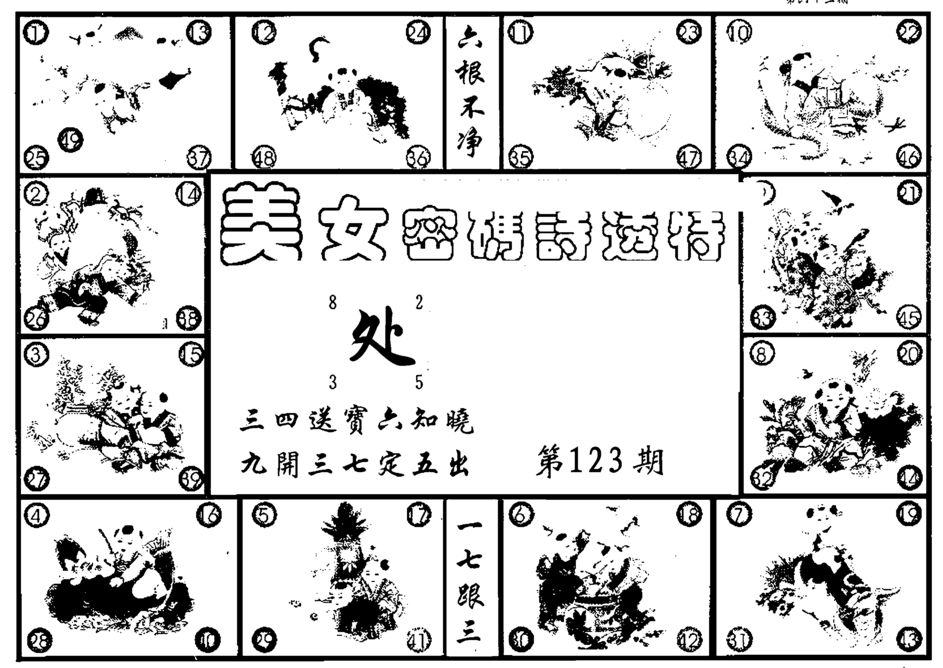 ① ⑬ ⑫ ㉔ 六根不净 ⑪ ㉓ ⑩ ㉒
㊾
㉕ ㊲ ㊽ ㊱ ㉟ ㊼ ㉞ ㊻
② ⑭ ㉑
美女密碼詩透特
㉖ ㊳ ㉝ ㊺
8 2
处
3 5
③ ⑮ ⑧ ⑳
三四送寶六知曉
九開三七定五出 第123期
㉗ ㊴ ㉜ ㊹
④ ⑯ ⑤ ⑰ 一七跟三 ⑥ ⑱ ⑦ ⑲
㉘ ㊵ ㉙ ㊶ ㉚ ㊷ ㉛ ㊸